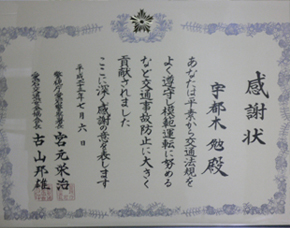 感謝状
宇都木 勉 殿
あなたは平素から交通法規を
よく遵守し模範運転に努める
など交通事故防止に大きく
貢献されました
ここに深く感謝の意を表します
平成二十五年七月六日
宮元栄治
古山邦雄